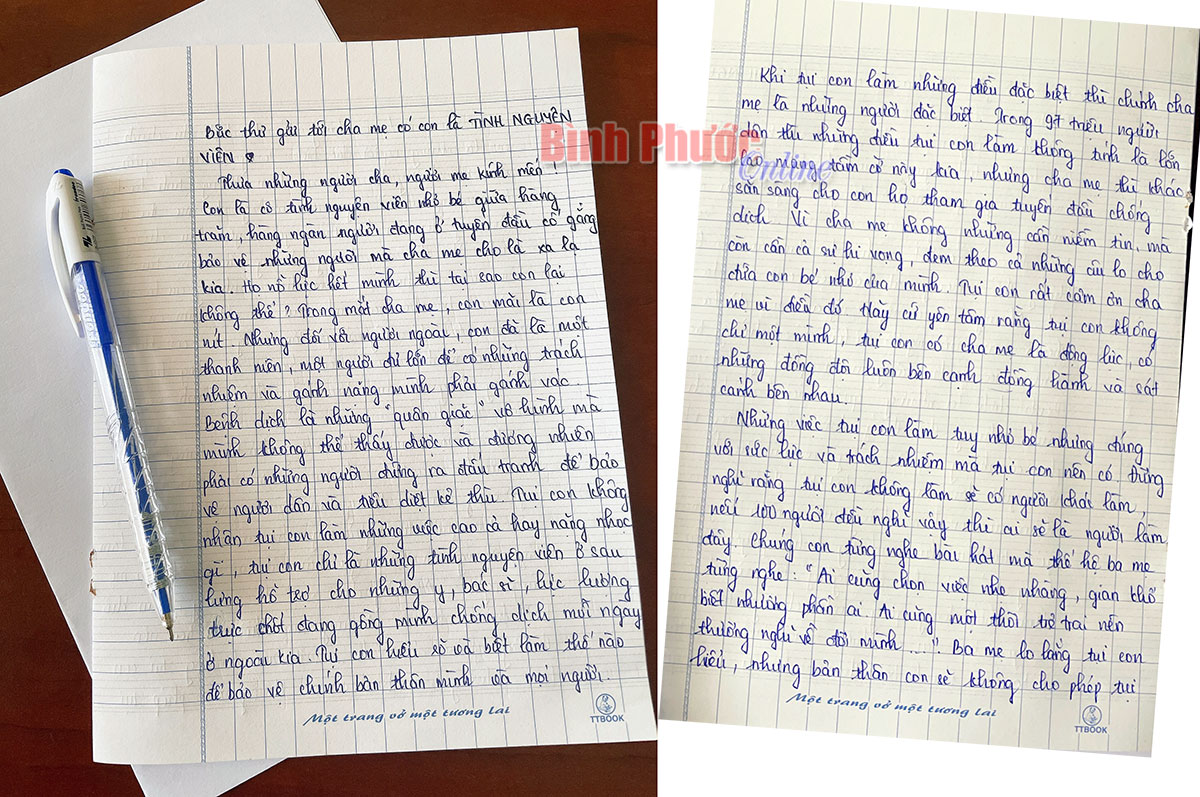 Bức thư gửi tới cha mẹ có con là TÌNH NGUYÊN
VIÊN
Thưa những người cha, người mẹ kính mến!
Con là cô tình nguyện viên nhỏ bé giữa hàng
trăm, hàng ngàn người đang ở tuyến đầu cố gắng
bảo vệ những người mà cha mẹ cho là xa lạ
kia. Họ nỗ lực hết mình thì tại sao con lại
không thể? Trong mắt cha mẹ, con mãi là con
nít. Nhưng đối với người ngoài, con đã là một
thanh niên, một người đủ lớn để có những trách
nhiệm và gánh nặng mình phải gánh vác.
Bệnh dịch là những "quân giặc" vô hình mà
mình không thể thấy được và đương nhiên
phải có những người đứng ra đấu tranh để bảo
vệ người dân và tiêu diệt kẻ thù. Tụi con không
nhận tụi con làm những việc cao cả hay nặng nhọc
gì, tụi con chỉ là những tình nguyện viên ở sau
lưng hỗ trợ cho những y, bác sĩ, lực lượng
trực chốt đang gồng mình chống dịch mỗi ngày
ở ngoài kia. Tụi con hiểu rõ và biết làm thế nào
để bảo vệ chính bản thân mình và mọi người.
Một trang vở một tương lai
TTBOOK
Bình Phước
Online
Khi tụi con làm những điều đặc biệt thì chính cha
mẹ là những người đặc biệt. Trong 97 triệu người
dân thì những điều tụi con làm không tính là lớn
lao mang tầm cỡ này kia, nhưng cha mẹ thì khác
sẵn sàng cho con họ tham gia tuyến đầu chống
dịch. Vì cha mẹ không những cần niềm tin, mà
còn cần cả sự hi vọng, đem theo cả những âu lo cho
đứa con bé nhỏ của mình. Tụi con rất cảm ơn cha
mẹ vì điều đó. Hãy cứ yên tâm rằng tụi con không
chỉ một mình, tụi con có cha mẹ là động lực, có
những đồng đội luôn bên cạnh đồng hành và sát
cánh bên nhau.
Những việc tụi con làm tuy nhỏ bé nhưng đúng
với sức lực và trách nhiệm mà tụi con nên có. Đừng
nghĩ rằng tụi con không làm sẽ có người khác làm,
nếu 100 người đều nghĩ vậy thì ai sẽ là người làm
đây. Chúng con từng nghe bài hát mà thế hệ ba mẹ
từng nghe: "Ai cũng chọn việc nhẹ nhàng, gian khổ
biết nhường phần ai. Ai cũng một thời trẻ trai nên
thường nghĩ về đời mình...". Ba mẹ lo lắng tụi con
hiểu, nhưng bản thân con sẽ không cho phép tụi
Một trang vở một tương lai
TTBOOK